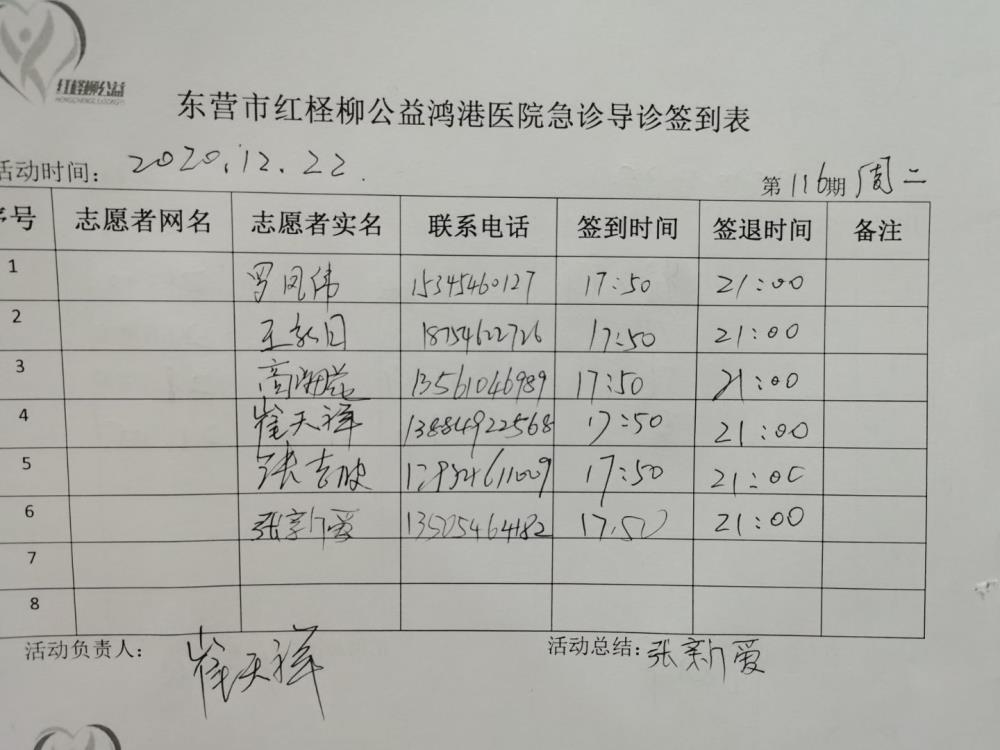 红柽柳公益
HONGCHENGLIUGONGYI
东营市红柽柳公益鸿港医院急诊导诊签到表
活动时间: 2020.12.22.
第116期 周二
序号 志愿者网名 志愿者实名 联系电话 签到时间 签退时间 备注
1 罗凤伟 15345460127 17:50 21:00
2 18754622726 17:50 21:00
3 13561046989 17:50 21:00
4 崔天祥 13884922568 17:50 21:00
5 张志波 17:50 21:00
6 张新爱 13505464182 17.50 21:00
7
8
活动负责人: 崔天祥
活动总结: 张新爱